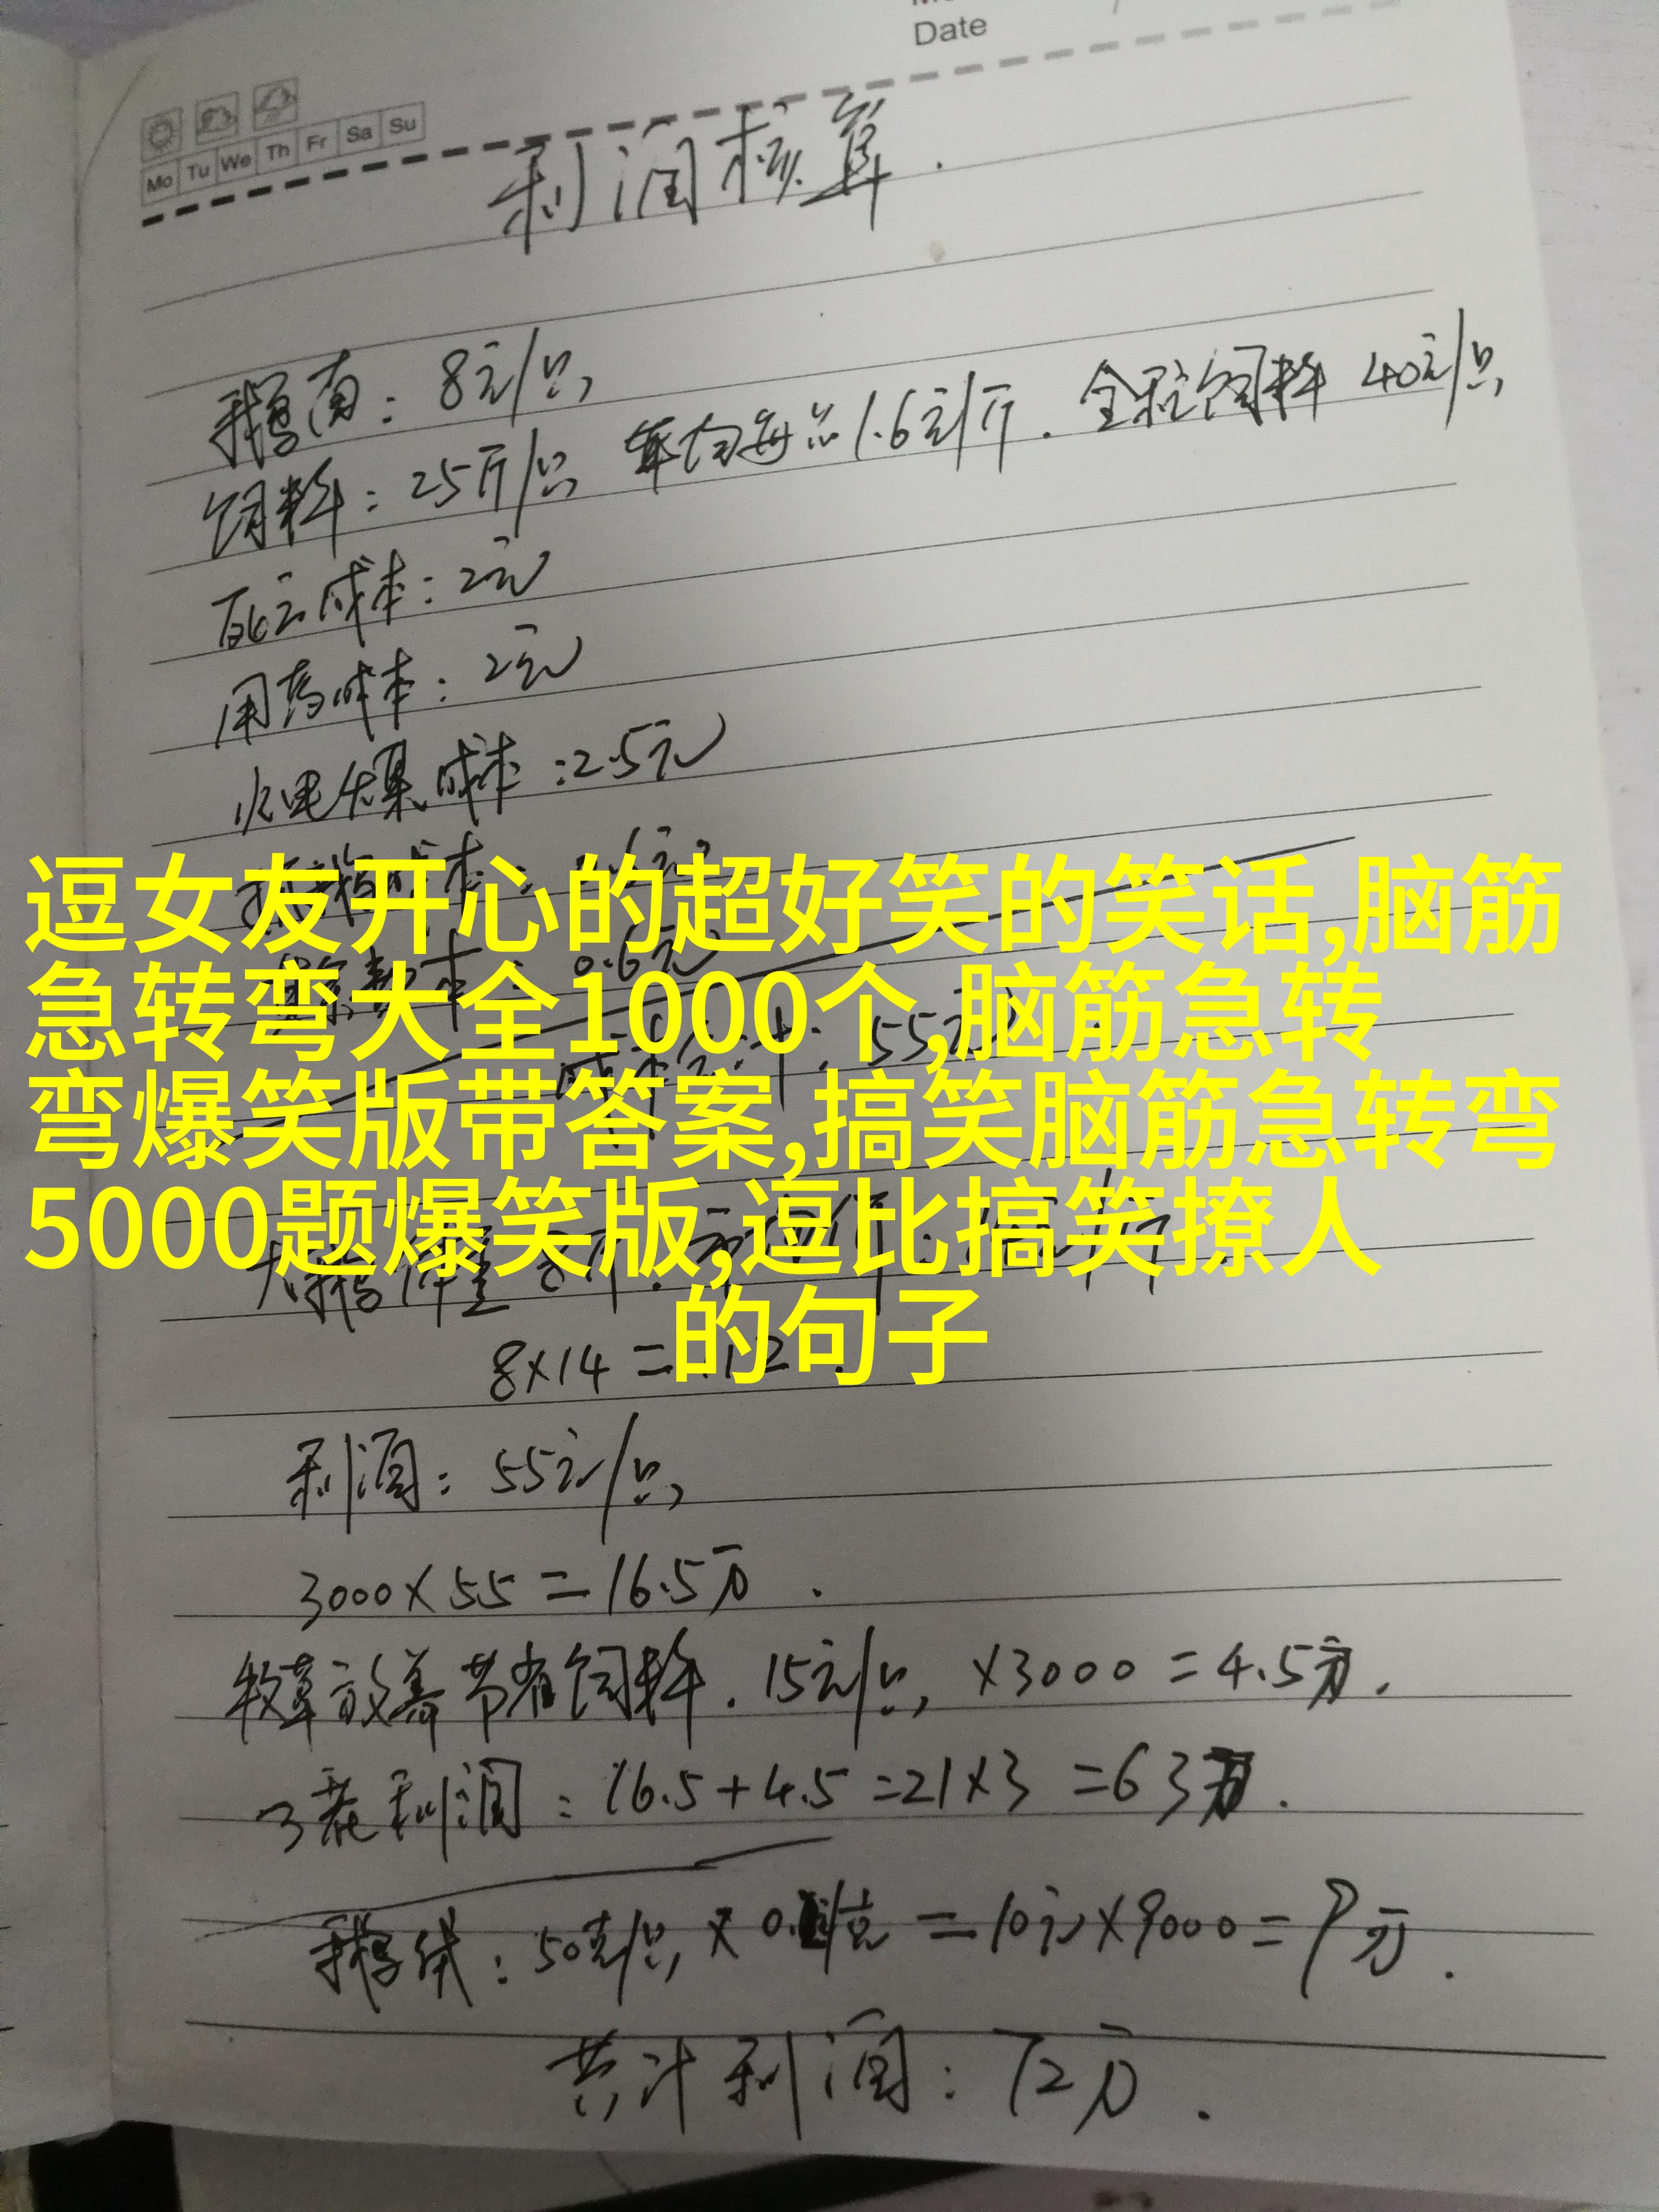 Date
Mo Tu We Th Fr Sa Su
利润核算.
鹅苗: 8元/只,
饲料: 25斤/只, 平均每斤1.6元/斤. 全程饲料 40元/只,
死亡成本: 2元
用药成本: 2元
水电煤成本: 2.5元
0.6元
55元
逗女友开心的超好笑的笑话,脑筋
急转弯大全1000个,脑筋急转
弯爆笑版带答案,搞笑脑筋急转弯
5000题爆笑版,逗比搞笑撩人
的句子
大鹅体重
8×14=
利润: 55元/只,
3000×55=16.5万.
牧草放养节省饲料. 15元/只, ×3000=4.5万.
3茬利润: 16.5+4.5=21×3=63万.
鹅绒: 50克/只, × =10元×9000=9万.
共计利润: 72万.